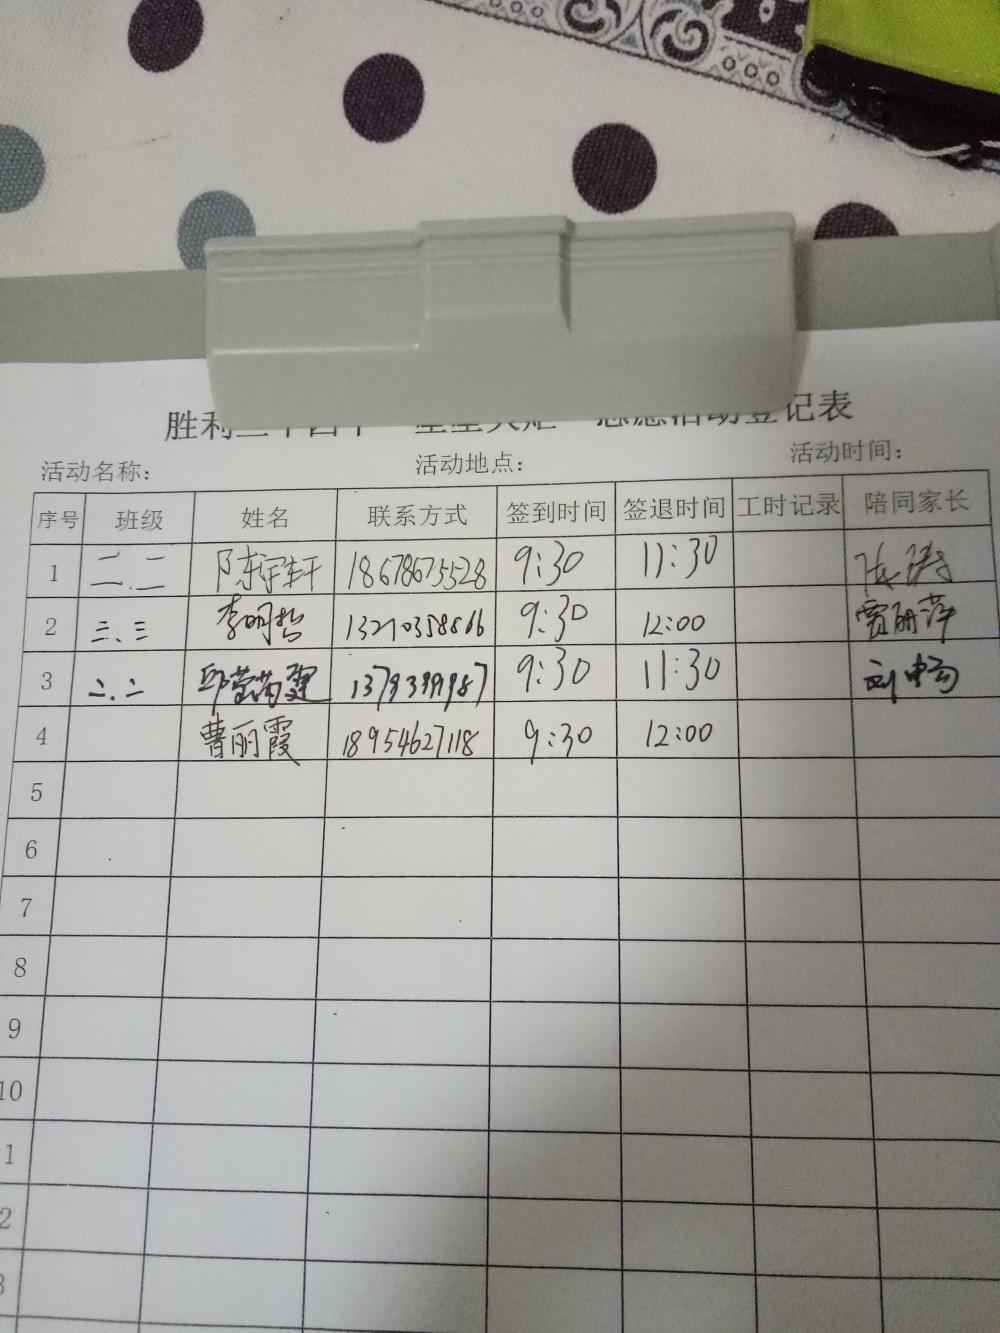 胜利 活动登记表
活动名称： 活动地点： 活动时间：
序号 班级 姓名 联系方式 签到时间 签退时间 工时记录 陪同家长
1 二.二 陈宇轩 18678675528 9:30 11:30
2 三、三 李明哲 13210358866 9:30 12:00 贾丽萍
3 二、二 9:30 11:30 刘畅
4 曹丽霞 18954627118 9:30 12:00
5
6
7
8
9
10
1
2
3